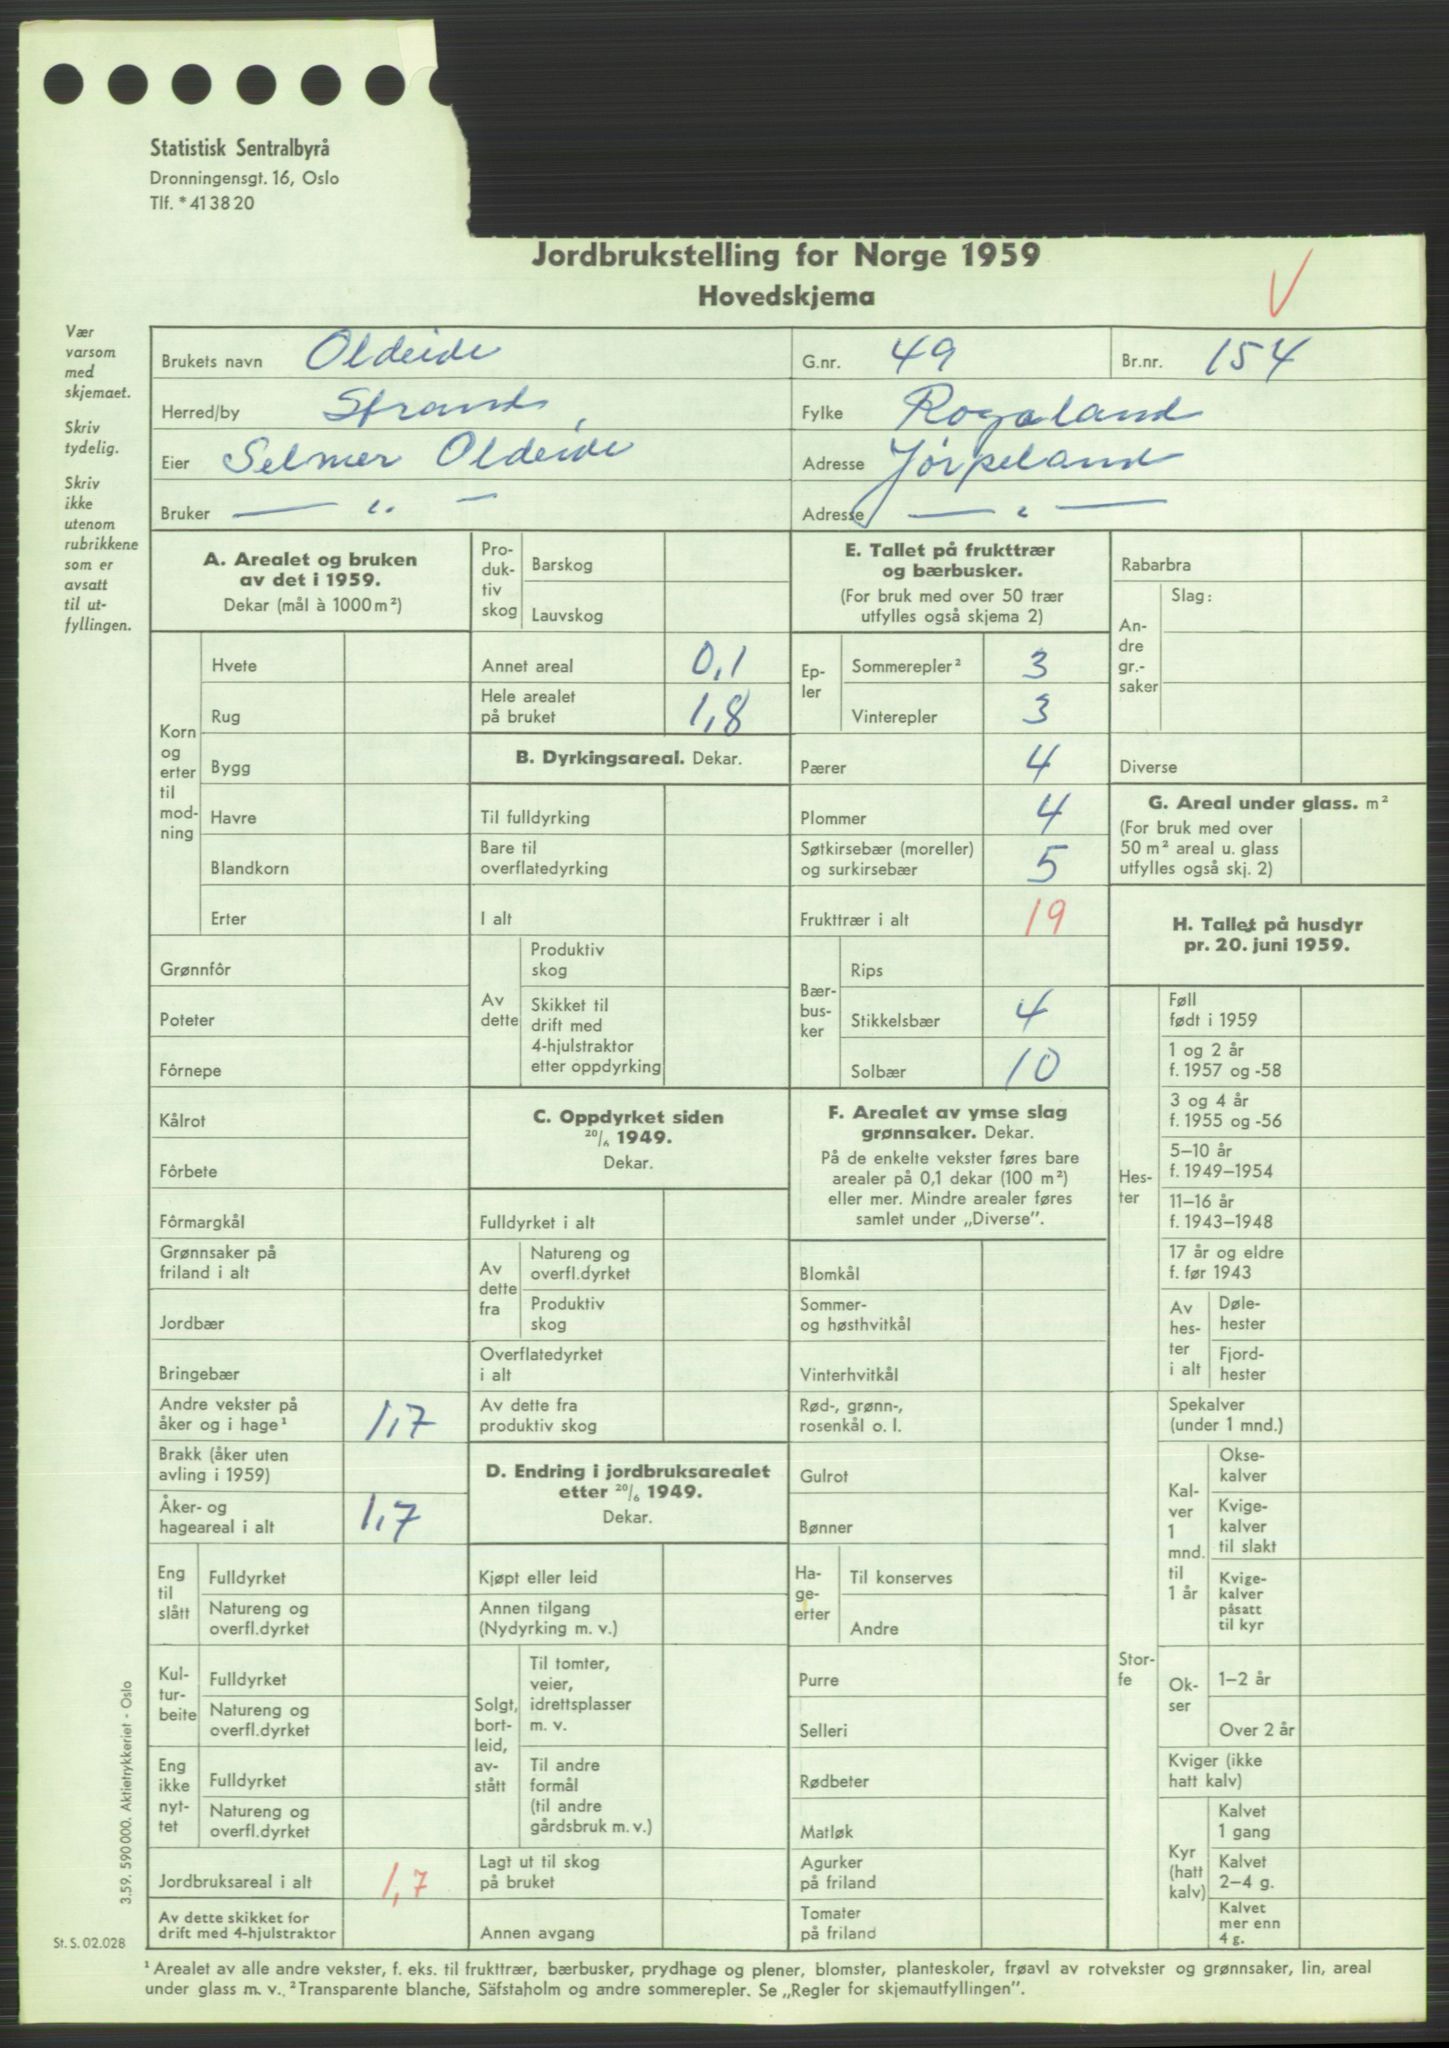 Statistisk Sentralbyrå
Dronningensgt. 16, Oslo
Tlf. *413820
Jordbrukstelling for Norge 1959
Hovedskjema
V
Vær
varsom
med
skjemaet.
Skriv
tydelig.
Skriv
ikke
utenom
rubrikkene
som er
avsatt
til ut-
fyllingen.
Brukets navn Oldeide G.nr. 49 Br.nr. 154
Herred/by Strand Fylke Rogaland
Eier Selmer Oldeide Adresse Jørpeland
Bruker — „ — Adresse — „ —
A. Arealet og bruken
av det i 1959.
Dekar (mål à 1000 m²)
Korn
og
erter
til
mod-
ning
Hvete
Rug
Bygg
Havre
Blandkorn
Erter
Grønnfôr
Poteter
Fôrnepe
Kålrot
Fôrbete
Fôrmargkål
Grønnsaker på
friland i alt
Jordbær
Bringebær
Andre vekster på
åker og i hage¹ 1,7
Brakk (åker uten
avling i 1959)
Åker- og
hageareal i alt 1,7
Eng
til
slått
Fulldyrket
Natureng og
overfl.dyrket
Kul-
tur-
beite
Fulldyrket
Natureng og
overfl.dyrket
Eng
ikke
nyt-
tet
Fulldyrket
Natureng og
overfl.dyrket
Jordbruksareal i alt 1,7
Av dette skikket for
drift med 4-hjulstraktor
Pro-
duk-
tiv
skog
Barskog
Lauvskog
Annet areal 0,1
Hele arealet
på bruket 1,8
B. Dyrkingsareal. Dekar.
Til fulldyrking
Bare til
overflatedyrking
I alt
Av
dette
Produktiv
skog
Skikket til
drift med
4-hjulstraktor
etter oppdyrking
C. Oppdyrket siden
20/6 1949.
Dekar.
Fulldyrket i alt
Av
dette
fra
Natureng og
overfl.dyrket
Produktiv
skog
Overflatedyrket
i alt
Av dette fra
produktiv skog
D. Endring i jordbruksarealet
etter 20/6 1949.
Dekar.
Kjøpt eller leid
Annen tilgang
(Nydyrking m. v.)
Solgt,
bort-
leid,
av-
stått
Til tomter,
veier,
idrettsplasser
m. v.
Til andre
formål
(til andre
gårdsbruk m. v.)
Lagt ut til skog
på bruket
Annen avgang
E. Tallet på frukttrær
og bærbusker.
(For bruk med over 50 trær
utfylles også skjema 2)
Ep-
ler
Sommerepler² 3
Vinterepler 3
Pærer 4
Plommer 4
Søtkirsebær (moreller)
og surkirsebær 5
Frukttrær i alt 19
Bær-
bus-
ker
Rips
Stikkelsbær 4
Solbær 10
F. Arealet av ymse slag
grønnsaker. Dekar.
På de enkelte vekster føres bare
arealer på 0,1 dekar (100 m²)
eller mer. Mindre arealer føres
samlet under „Diverse”.
Blomkål
Sommer-
og høsthvitkål
Vinterhvitkål
Rød-, grønn-,
rosenkål o. l.
Gulrot
Bønner
Ha-
ge-
erter
Til konserves
Andre
Purre
Selleri
Rødbeter
Matløk
Agurker
på friland
Tomater
på friland
Rabarbra
An-
dre
gr.-
saker
Slag:
Diverse
G. Areal under glass. m²
(For bruk med over
50 m² areal u. glass
utfylles også skj. 2)
H. Tallet på husdyr
pr. 20. juni 1959.
Hes-
ter
Føll
født i 1959
1 og 2 år
f. 1957 og -58
3 og 4 år
f. 1955 og -56
5–10 år
f. 1949–1954
11–16 år
f. 1943–1948
17 år og eldre
f. før 1943
Av
hes-
ter
i alt
Døle-
hester
Fjord-
hester
Stor-
fe
Spekalver
(under 1 mnd.)
Kal-
ver
1
mnd.
til
1 år
Okse-
kalver
Kvige-
kalver
til slakt
Kvige-
kalver
påsatt
til kyr
Ok-
ser
1–2 år
Over 2 år
Kviger (ikke
hatt kalv)
Kyr
(hatt
kalv)
Kalvet
1 gang
Kalvet
2–4 g.
Kalvet
mer enn
4 g.
3.59. 590 000. Aktietrykkeriet - Oslo
St. S. 02.028
¹ Arealet av alle andre vekster, f. eks. til frukttrær, bærbusker, prydhage og plener, blomster, planteskoler, frøavl av rotvekster og grønnsaker, lin, areal
under glass m. v. ² Transparente blanche, Säfstaholm og andre sommerepler. Se „Regler for skjemautfyllingen”.